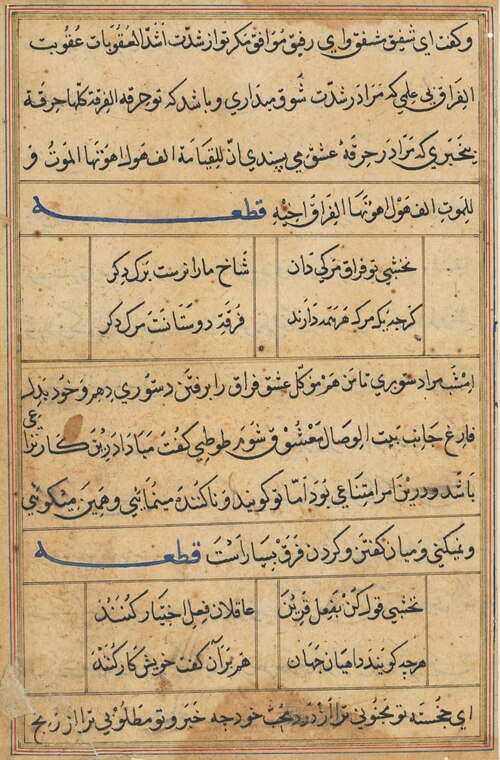 وکفت ای شفیق مشفق وای رفیق موافق مکر تو از شدت اشدّ العقوبات عقوبت
الفراق بی علمی که مرا در شدّت شوق میداری و یا شد که تو حرقه الفرقة کلها حرقة
بیخبری که مرا در حرقهٔ عشق می پسندی انّ للقیامة الف هول اهونها الموت و
للموت الف هول اهونها الفراق احبّه قطعه
نخشبی تو فراق مرکی دان شاخ ما را نرست برک دکر
کرچه یک مرک هر همه دارند فرقت دوستانت مرک دکر
امشب مرا دستوری تا من هم موکل عشق فراق را برفتن دستوری دهم و خود بدل
فارغ جانب بیت الوصال معشوق شوم طوطی کفت مبادا در این کار ترا
باشد و در ین امر امتناعی بود اما تو کوینده و ناکننده مینمائی و همین میکوئی
و نمیکنی و میان کفتن و کردن فرق بسیار است قطعه
نخشبی قول کن بفعل قرین عاقلان فعل اختیار کنند
هرچه کویند داهیان جهان هم بر آن کفت خویش کار کنند
ای خجسته تو مجنونی ترا از درد محب خود چه خبر و تو مطلوبی ترا از رنج